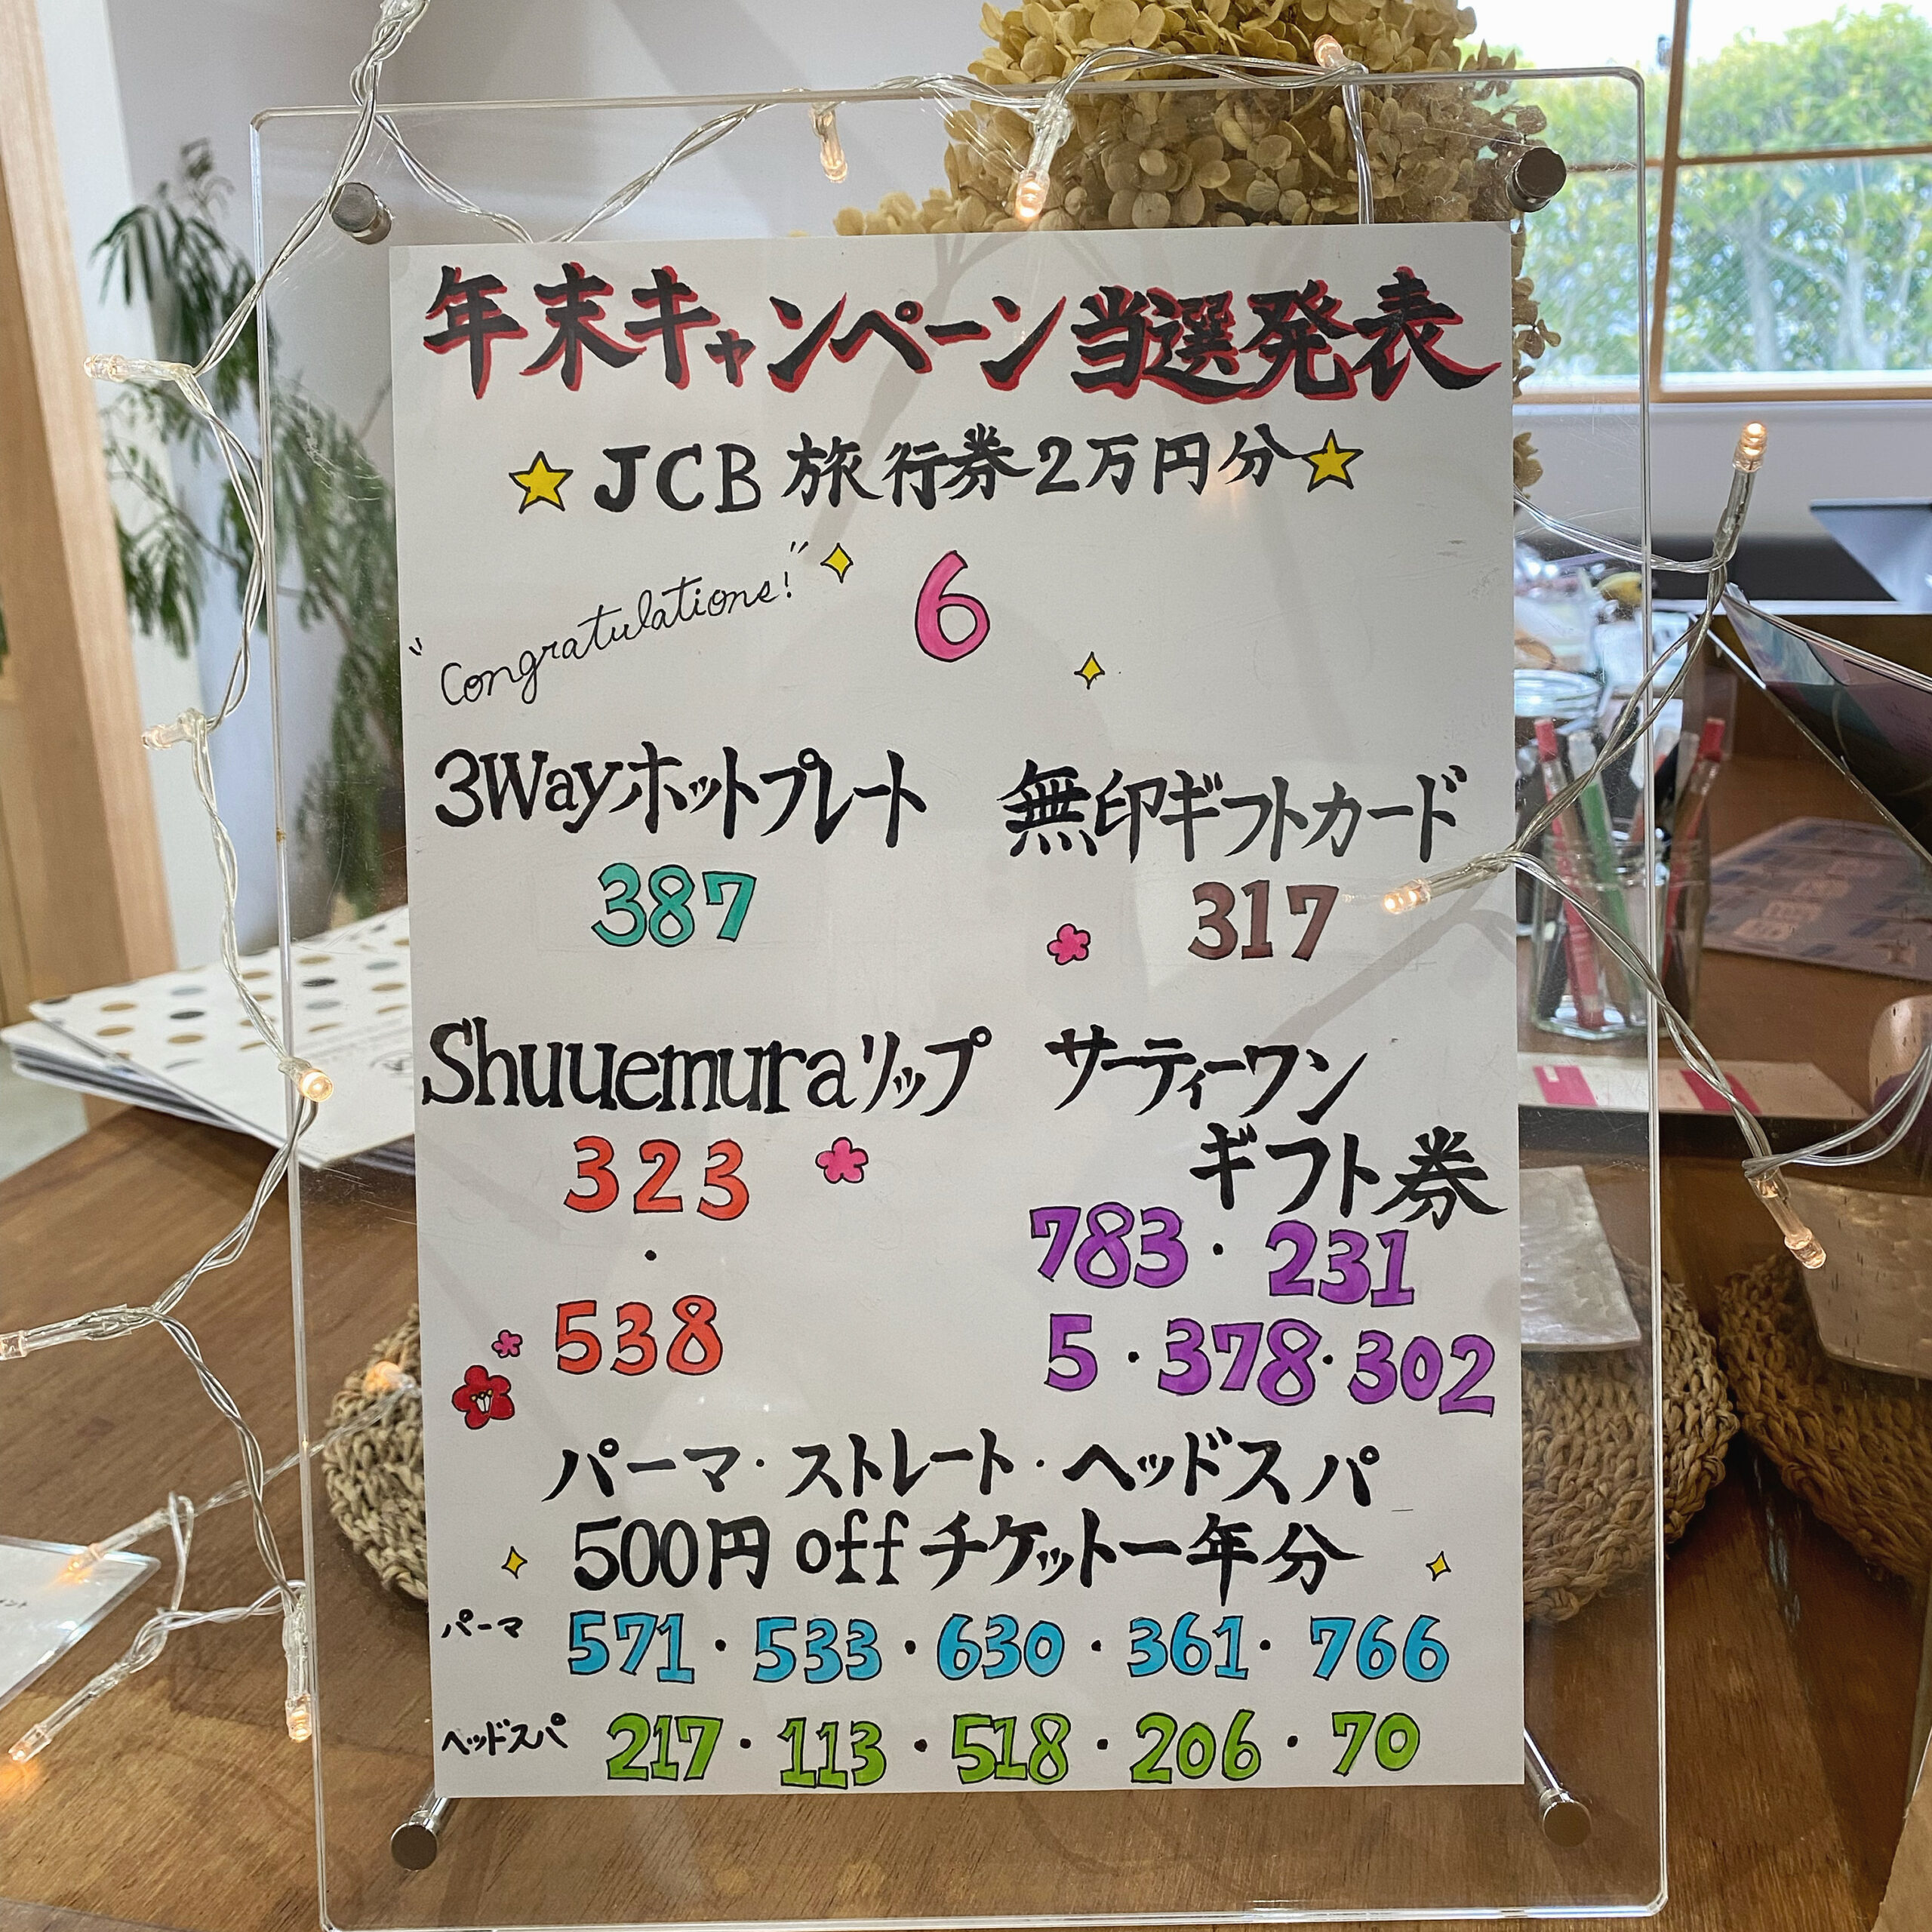 年末キャンペーン当選発表
★JCB旅行券2万円分★
"Congratulations!"
6
3Wayホットプレート
387
無印ギフトカード
317
Shuuemuraリップ
323
・
538
サーティーワン
ギフト券
783・231
5・378・302
パーマ・ストレート・ヘッドスパ
500円offチケット一年分
パーマ 571・533・630・361・766
ヘッドスパ 217・113・518・206・70